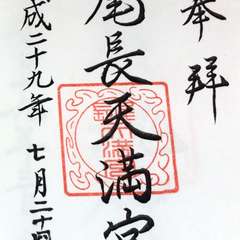 奉拝
尾長天満宮
成二十九年 七月二十四